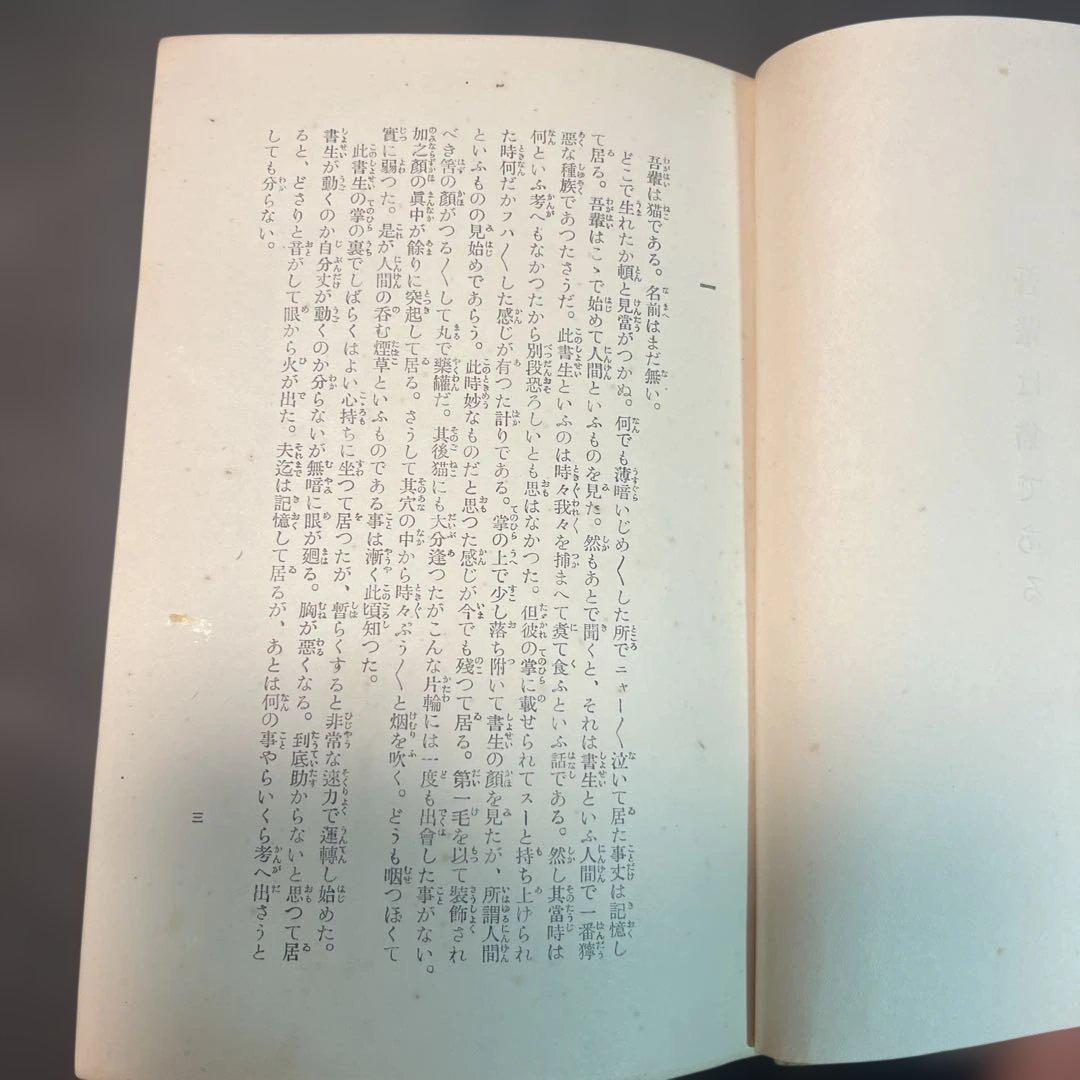 一
吾輩は猫である。名前はまだ無い。
どこで生れたか頓と見當がつかぬ。何でも薄暗いじめ〳〵した所でニャー〳〵泣いて居た事丈は記憶し
て居る。吾輩はこゝで始めて人間といふものを見た。然もあとで聞くと、それは書生といふ人間で一番獰
惡な種族であつたさうだ。此書生といふのは時々我々を捕まへて煑て食ふといふ話である。然し其當時は
何といふ考へもなかつたから別段恐ろしいとも思はなかつた。但彼の掌に載せられてスーと持ち上げられ
た時何だかフハ〳〵した感じが有つた計りである。掌の上で少し落ち附いて書生の顏を見たが、所謂人間
といふものの見始めであらう。此時妙なものだと思つた感じが今でも殘つて居る。第一毛を以て裝飾され
べき筈の顏がつる〳〵して丸で藥罐だ。其後猫にも大分逢つたがこんな片輪には一度も出會した事がない。
加之顏の眞中が餘りに突起して居る。さうして其穴の中から時々ぷう〳〵と烟を吹く。どうも咽つぽくて
實に弱つた。是が人間の呑む煙草といふものである事は漸く此頃知つた。
此書生の掌の裏でしばらくはよい心持ちに坐つて居つたが、暫らくすると非常な速力で運轉し始めた。
書生が動くのか自分丈が動くのか分らないが無暗に眼が廻る。胸が惡くなる。到底助からないと思つて居
ると、どさりと音がして眼から火が出た。夫迄は記憶して居るが、あとは何の事やらいくら考へ出さうと
しても分らない。
三